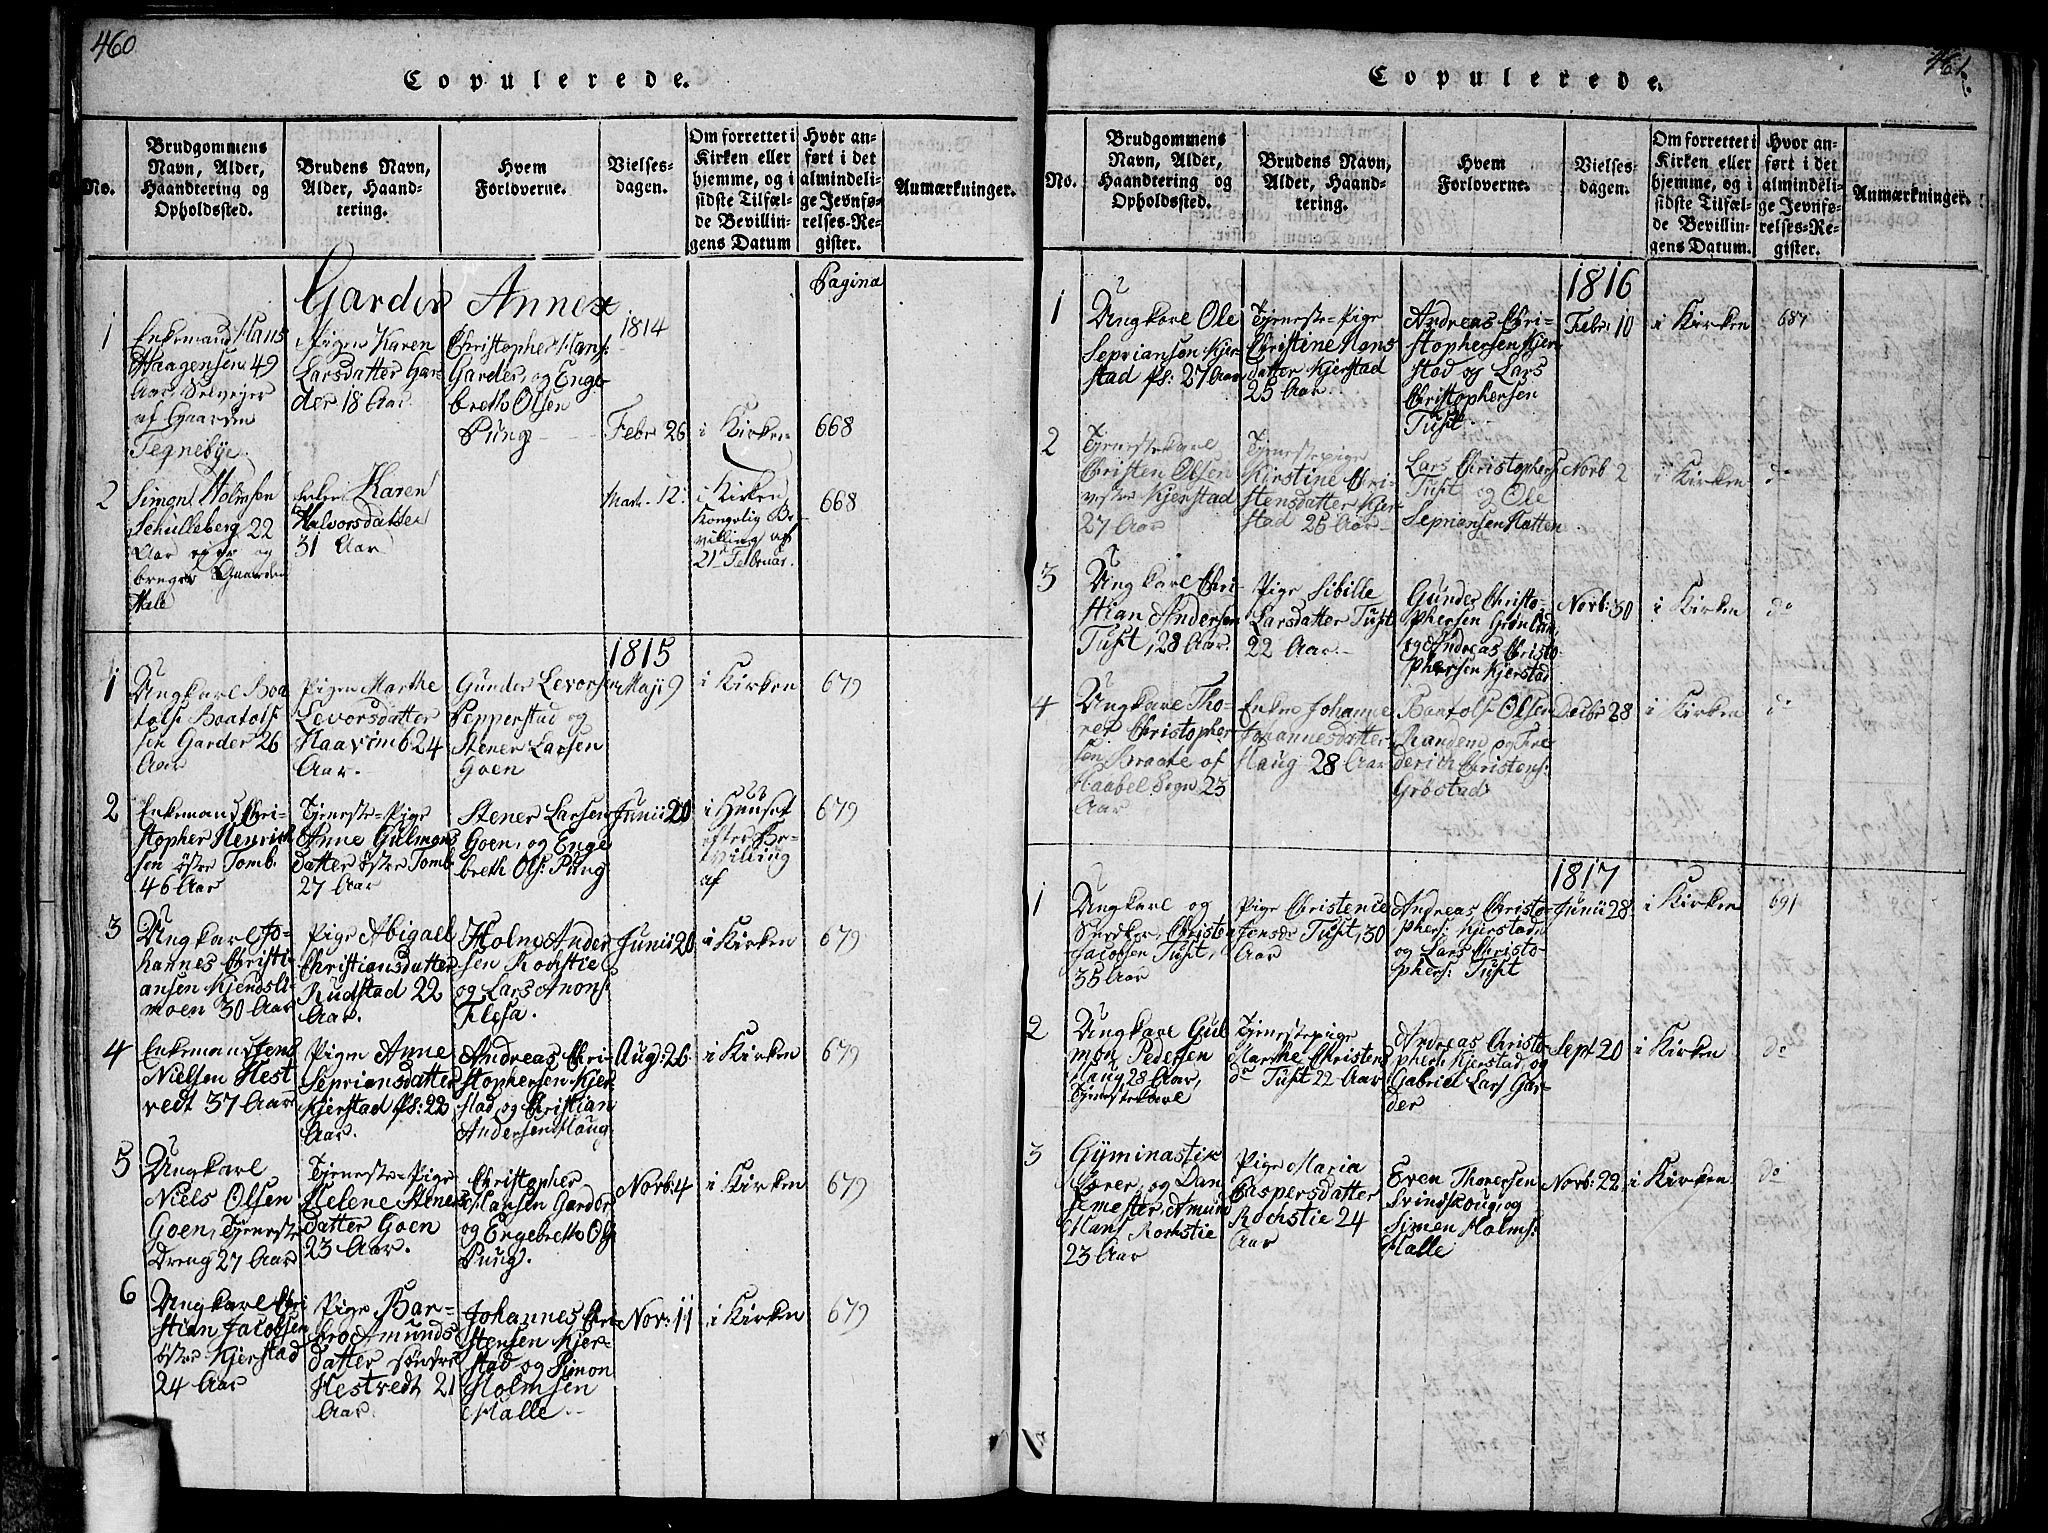 460
Copulerede.
No.
Brudgommens
Navn, Alder,
Haandtering og
Opholdssted.
Brudens Navn,
Alder, Haand-
tering.
Hvem
Forloverne.
Vielses-
dagen.
Om forrettet i
Kirken eller
hjemme, og i
sidste Tilfæl-
de Bevillin-
gens Datum
Hvor an-
ført i det
almindeli-
ge Jevnfø-
relses-Re-
gister.
Anmærkninger.
Garder Annex
Pagina
1814
1
Enkemand Hans
Haagensen 49
Aar,
af Gaarden
Tegnebye.
Pigen Karen
Larsdatter Gar-
der 18 Aar
Christopher Hans:
Garder, og Enge-
breth Olsen
Pung
Febr 26
i Kirken
668
2
Simon Holmsen
Schulleberg 22
Aar og
bruger Gaarden
Hale
Enke Karen
Halvorsdatter
31 Aar
Mart. 12.
i Kirken
Kongelig Be-
villing af
21 Februar.
668
1815
1
Ungkarl Boe
tolf Boatolf
sen Garder 26
Aar
Pigen Marthe
Levorsdatter
Haavimb 24
Aar.
Gunder Levorsen
Pepperstad og
Stener Larsen
Goen
Maji 9
i Kirken
679
2
Enkemand Chri-
stopher Henrich
sen østre Tomb.
46 Aar
Tjeneste-Pige
Anne Gulmons
datter østre Tomb
27 Aar
Stener Larsen
Goen, og Enge
breth Ols: Pung
Junii 20
i Huuset
efter Be-
villing
af
679
3
Ungkarl Jo-
hannes Christi-
ansen Kjendsli-
moen 30 Aar
Pige Abigael
Christiansdatter
Rudstad 22
Aar.
Holm Ander
sen Rochstie
og Lars Anons:
Flesa.
Junii 20
i Kirken
679
4
Enkemand Jens
Nielsen Hest
vedt 37 Aar
Pigen Anne
Sepriansdatter
Kjerstad Ps: 22
Aar.
Andreas Chri-
stophersen Kjer
stad, og Christian
Andersen Haug
Aug: 26.
i Kirken
679
5
Ungkarl
Niels Olsen
Goen, Tjeneste
Dreng 27 Aar
Tjeneste-Pige
Helene Stener
datter Goen
23 Aar.
Christopher
Hansen Garder
og Engebreth Ols
Pung.
Novb: 4
i Kirken
679
6
Ungkarl Chri
stian Jacobsen
østre Kjerstad
24 Aar
Pige Bar-
bro Amunds
datter søndre
Hestvedt 21
Aar.
Johannes Chri-
stensen Kjer-
stad og Simon
Holmsen
Halle.
Nov: 11
i Kirken
679
461.
Copulerede.
No.
Brudgommens
Navn, Alder,
Haandtering og
Opholdssted.
Brudens Navn,
Alder, Haand-
tering.
Hvem
Forloverne.
Vielses-
dagen.
Om forrettet i
Kirken eller
hjemme, og i
sidste Tilfæl-
de Bevillin-
gens Datum.
Hvor an-
ført i det
almindeli-
ge Jevnfø-
relses-Re-
gister.
Anmærkninger.
1816
1
Ungkarl Ole
Sepriansøn Kjer-
stad Ps: 27 Aar
Tjeneste-Pige
Christene Hans
datter Kjerstad
25 Aar
Andreas Chri-
stophersen Kjer-
stad og Lars
Christophersen
Tust
Febr: 10
i Kirken
687
2
Tjenestekarl
Christen Olsen
vestre Kjerstad
27 Aar
Tjenestepige
Kirstine Chri-
stensdatter Kjer
stad 25 Aar
Lars Christophers
Tust og Ole
Sepriansen Natten
Novb 2
i Kirken
do
3
Ungkarl Chri-
stian Andersen
Tust, 28 Aar.
Pige Sibille
Larsdatter Tust
22 Aar.
Gunder Christo-
phersen Grønlun,
og Andreas Christo
phersen Kjerstad
Novb: 30
i Kirken
do
4
Ungkarl Tho-
rer Christopher
sen Kraake af
Haabel Sogn 23
Aar
Enke Johanne
Johannesdatter
Haug 28 Aar
Baatolf Olsen
Randem og Fre
derich Christens:
Grøstad
Decbr 28
i Kirken
do
1817
1
Ungkarl og
Christen
Jacobsen Tust,
35 Aar
Pige Christence
Jensdr Tust, 30
Aar
Andreas Christo-
phers: Kjerstad
og Lars Christo-
phers: Tust
Junii 28
i Kirken
691
2
Ungkarl Gul
mon Pedersen
Haug 28 Aar,
Tjenestekarl
Tjenestepige
Marthe Christens
dr Tust 22 Aar
Andreas Christo-
phers: Kjerstad, og
Gabriel Lars Gar-
der
Sept 20
i Kirken
do
3
Gyminastik
Lærer, og Dan
semester, Amund
Hans Rochstie
23 Aar
Pige Maria
Caspersdatter
Rochstie 24
Aar
Even Thoresen
Svindskoug, og
Simen Holms:
Halle
Novb: 22
i Kirken
do